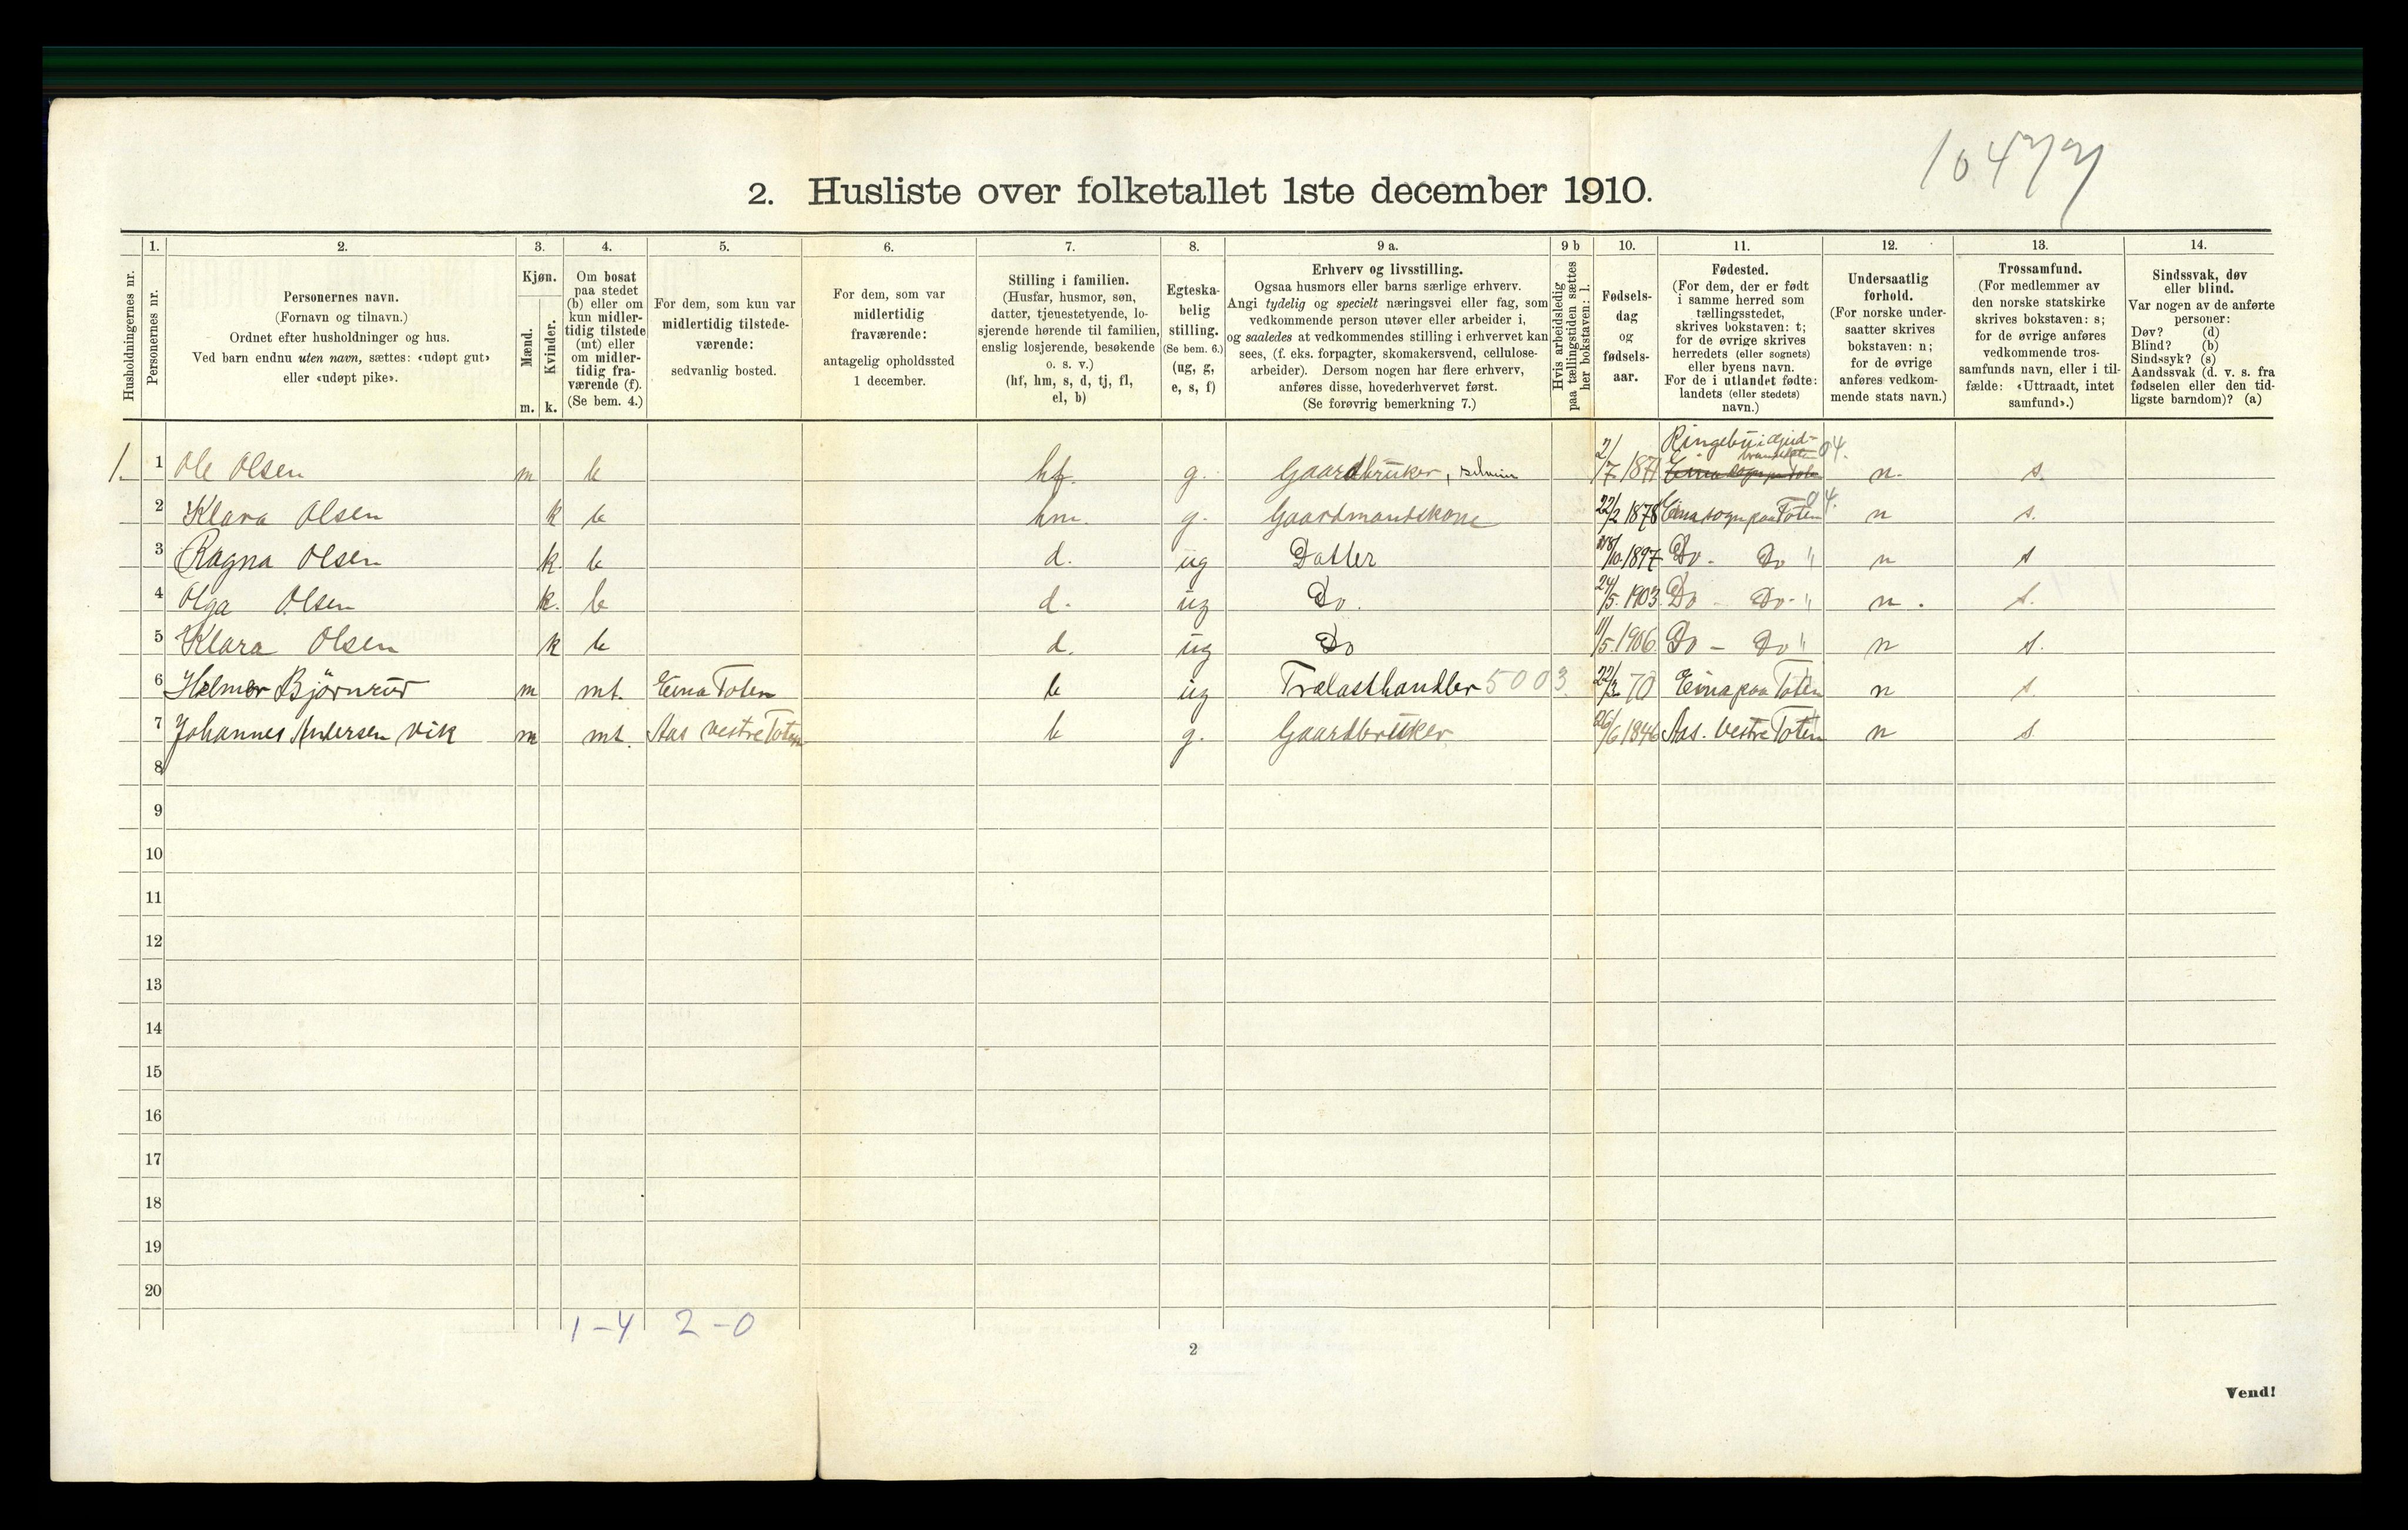 10477
2. Husliste over folketallet 1ste december 1910.
Husholdningernes nr.
1.
Personernes nr.
2.
Personernes navn.
(Fornavn og tilnavn.)
Ordnet efter husholdninger og hus.
Ved barn endnu uten navn, sættes: «udøpt gut»
eller «udøpt pike».
3.
Kjøn.
Mænd.
Kvinder.
m. k.
4.
Om bosat
paa stedet
(b) eller om
kun midler-
tidig tilstede
(mt) eller
om midler-
tidig fra-
værende (f).
(Se bem. 4.)
5.
For dem, som kun var
midlertidig tilstede-
værende:
sedvanlig bosted.
6.
For dem, som var
midlertidig
fraværende:
antagelig opholdssted
1 december.
7.
Stilling i familien.
(Husfar, husmor, søn,
datter, tjenestetyende, lo-
sjerende hørende til familien,
enslig losjerende, besøkende
o. s. v.)
(hf, hm, s, d, tj, fl,
el, b)
8.
Egteska-
belig
stilling.
(Se bem. 6.)
(ug, g,
e, s, f)
9 a.
Erhverv og livsstilling.
Ogsaa husmors eller barns særlige erhverv.
Angi tydelig og specielt næringsvei eller fag, som
vedkommende person utøver eller arbeider i,
og saaledes at vedkommendes stilling i erhvervet kan
sees, (f. eks. forpagter, skomakersvend, cellulose-
arbeider). Dersom nogen har flere erhverv,
anføres disse, hovederhvervet først.
(Se forøvrig bemerkning 7.)
9 b
Hvis arbeidsledig
paa tællingstiden sættes
her bokstaven: l.
10.
Fødsels-
dag
og
fødsels-
aar.
11.
Fødested.
(For dem, der er født
i samme herred som
tællingsstedet,
skrives bokstaven: t;
for de øvrige skrives
herredets (eller sognets)
eller byens navn.
For de i utlandet fødte:
landets (eller stedets)
navn.)
12.
Undersaatlig
forhold.
(For norske under-
saatter skrives
bokstaven: n;
for de øvrige
anføres vedkom-
mende stats navn.)
13.
Trossamfund.
(For medlemmer av
den norske statskirke
skrives bokstaven: s;
for de øvrige anføres
vedkommende tros-
samfunds navn, eller i til-
fælde: «Uttraadt, intet
samfund».)
14.
Sindssvak, døv
eller blind.
Var nogen av de anførte
personer:
Døv? (d)
Blind? (b)
Sindssyk? (s)
Aandssvak (d. v. s. fra
fødselen eller den tid-
ligste barndom)? (a)
1. 1 Ole Olsen m b hf. g. Gaardbruker, 2/7 1871 Ringebu i Gud- 04. n. s.
2 Klara Olsen k b hm. g. Gaardmandskone 22/2 1878 Eina sogn paa Toten 04. n s.
3 Ragna Olsen k. b d. ug Datter 1897 Do - Do " n s
4 Olga Olsen k. b d. ug Do. 24/5. 1903 Do - Do - " n. s.
5 Klara Olsen k b d. ug Do 11/5. 1906 Do - Do " n s.
6 Helmer Björnrud m mt. Eina Toten b ug Trælasthandler 5003. 70 Eina paa Toten n s.
7 Johannes Andersen Vik m mt. Aas Vestre Toten b g. Gaardbruker 26/6 1846 Aas. Vestre Toten n s.
8
9
10
11
12
13
14
15
16
17
18
19
20
1-4 2-0
2
Vend!